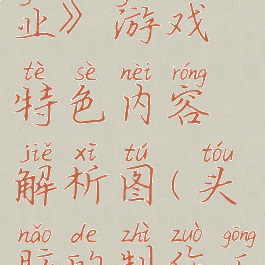 业》游戏
tè sè nèi róng
特色内容
jiě xī tú tóu
解析图(头
nǎo de zhì zuò gōng
脑的制作工